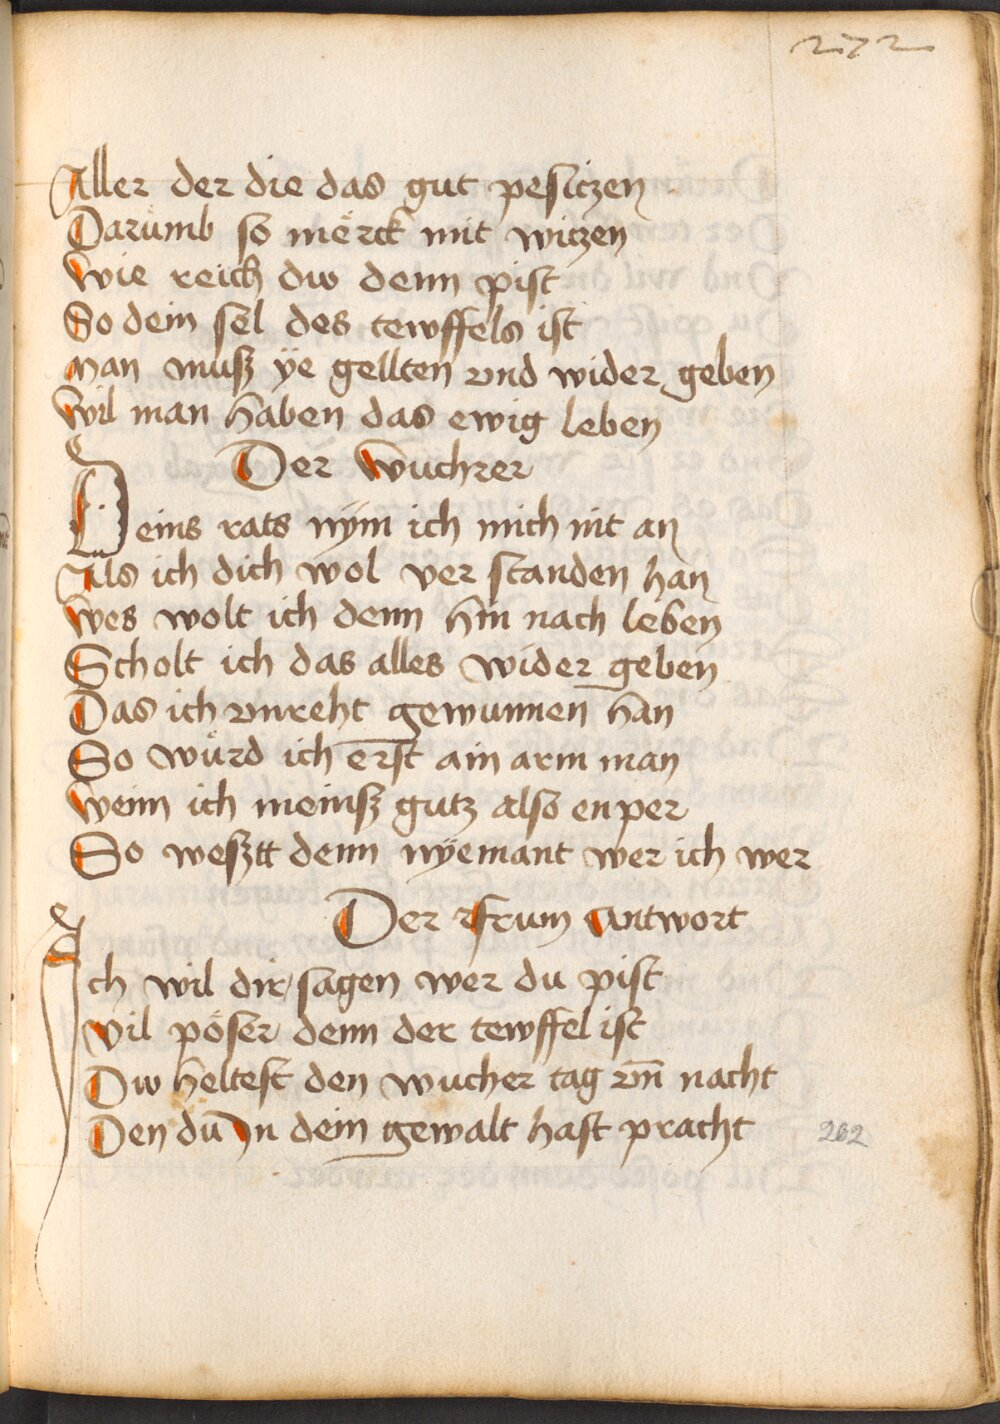 272
Aller der die das gut pesitzen
Darümb so mërck mit witzen
Wie reich dw denn pist
So dein sel des tewffels ist
Man musz ÿe gellten vnd wider geben
Wil man haben das ewig leben
Der Wuchrer
Deins rats nÿm ich mich nit an
Als ich dich wol ver standen han
Wes wolt ich denn hin nach leben
Scholt ich das alles wider geben
Das ich vnreht gewunnen han
So würd ich erst ain arm man
Wenn ich meinsz gutz also enper
So wesztt denn nÿemant wer ich wer
Der frum Antwort
Ich wil dir sagen wer du pist
Vil pöser denn der tewffel ist
Dw heltest den wucher tag vn̄ nacht
Den du In dein gewalt hast pracht
262